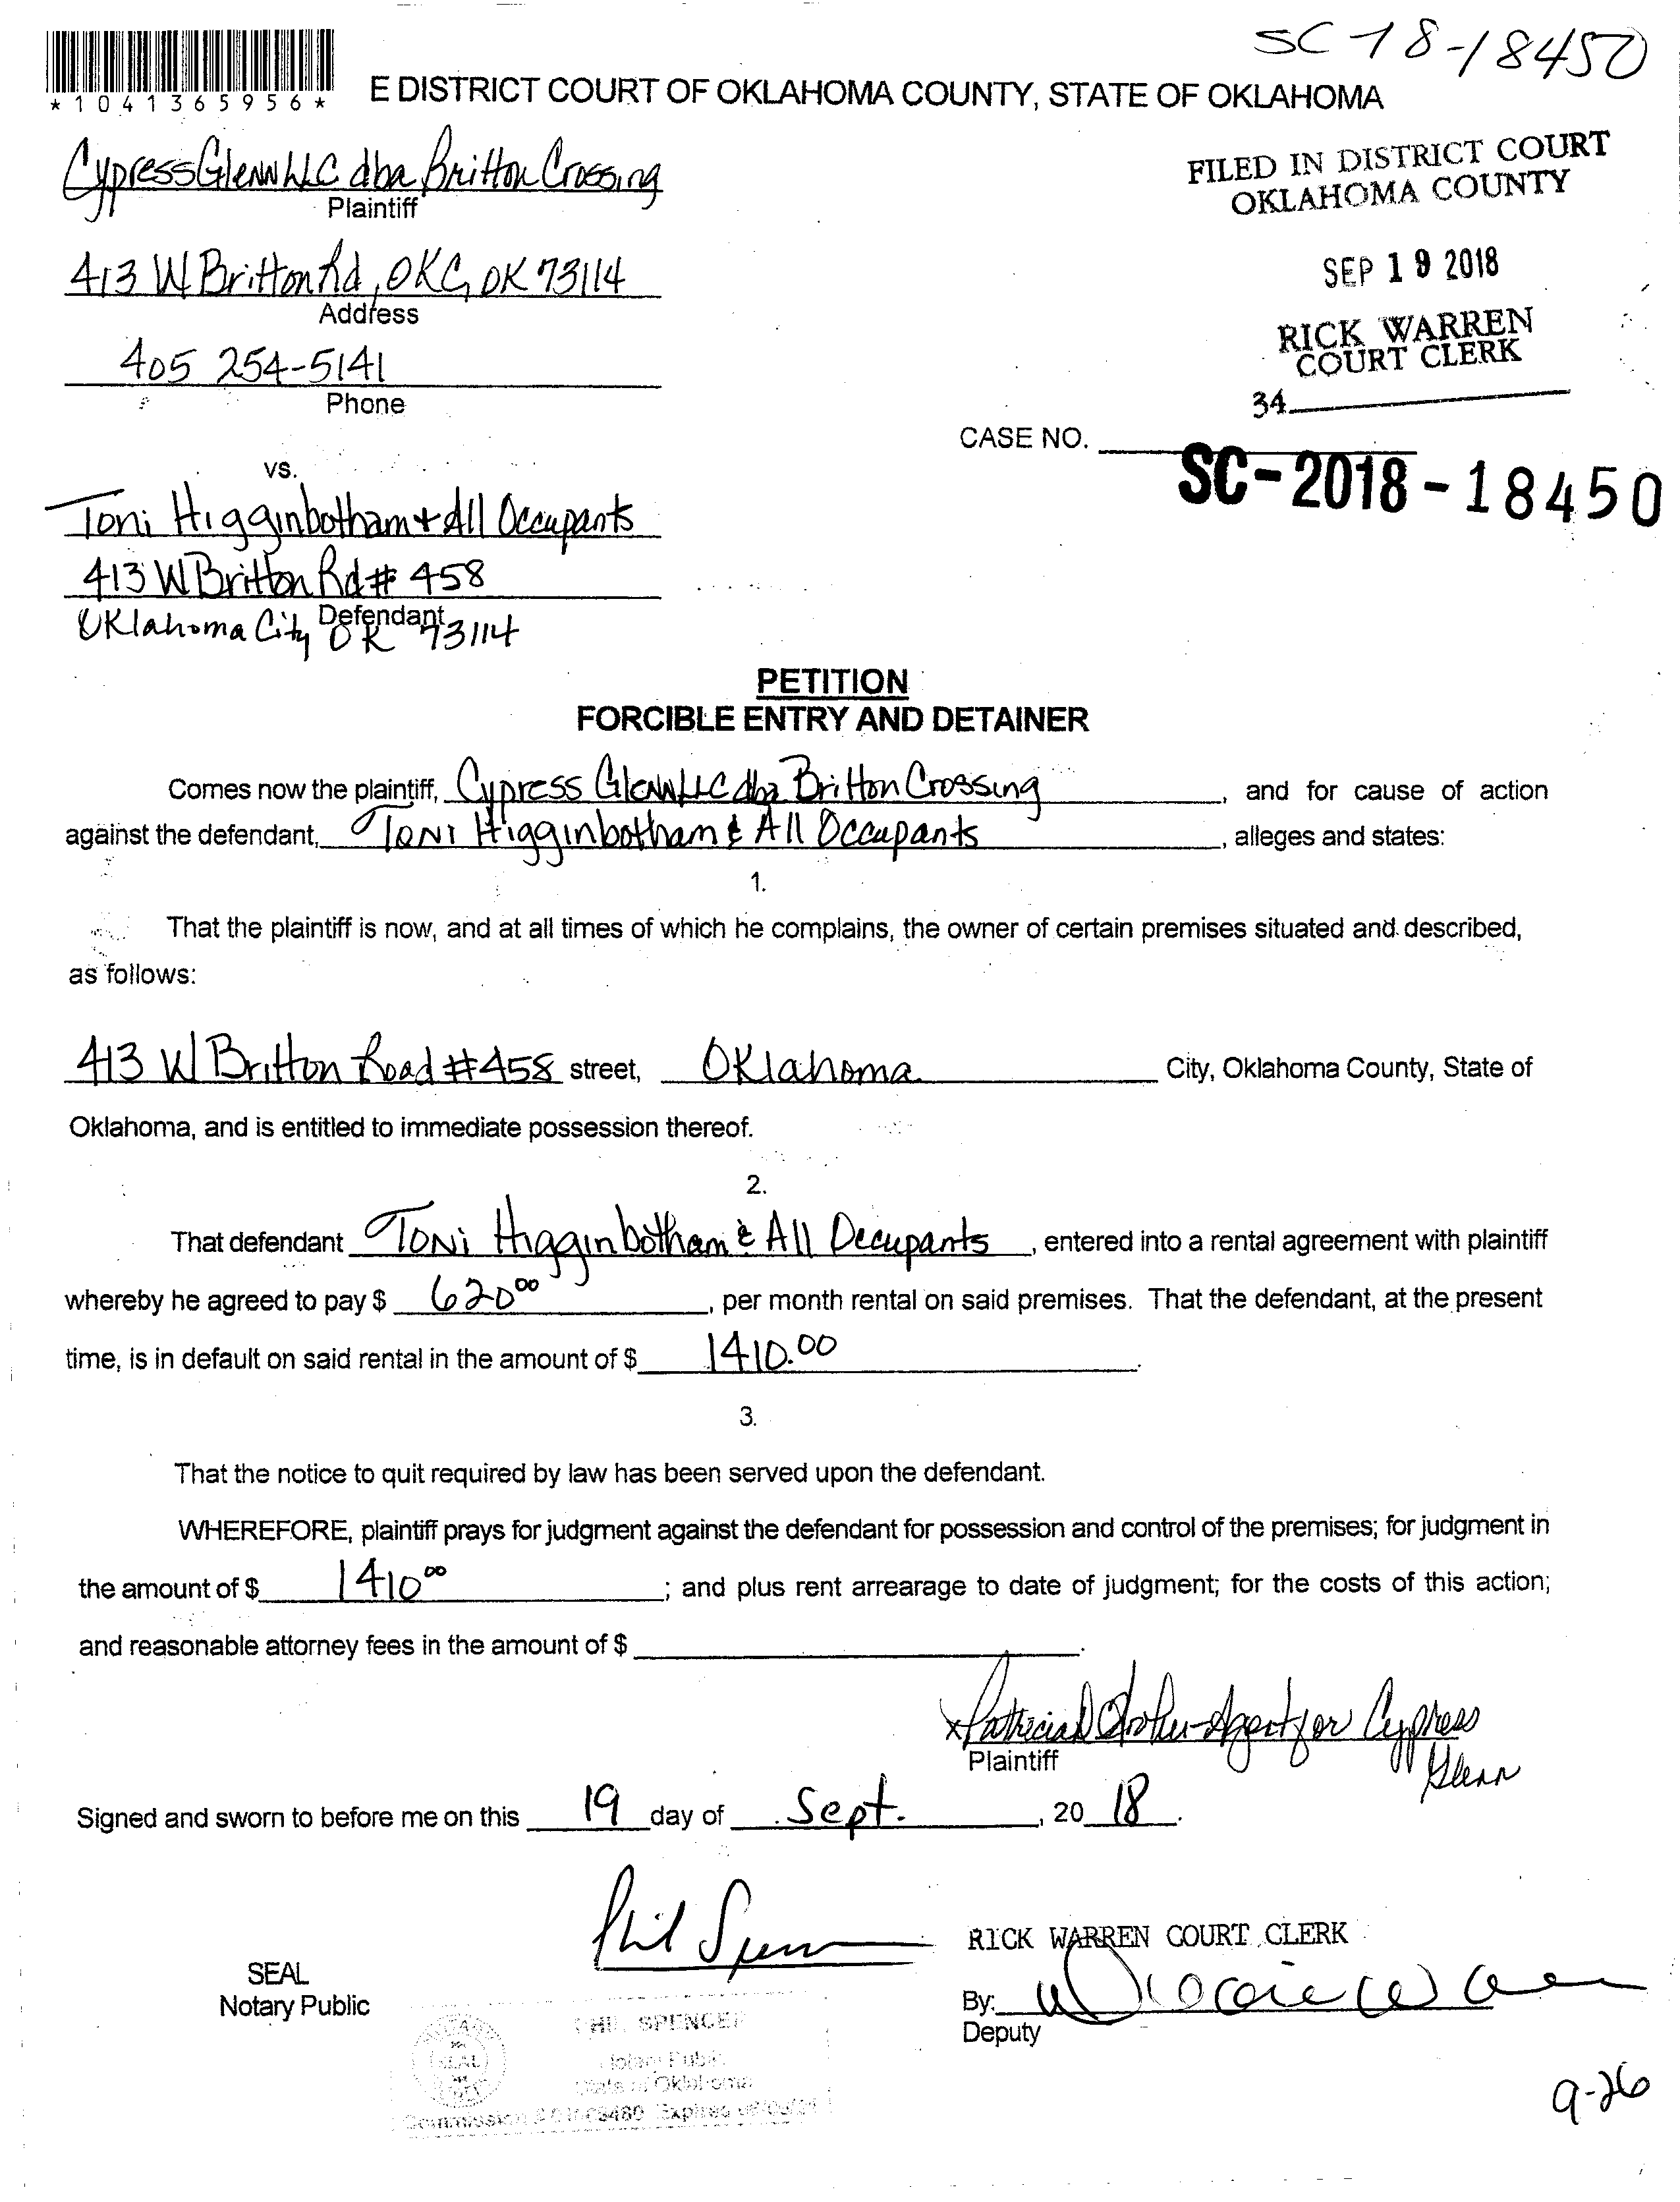 SC-18-18450
*1041365956*
E DISTRICT COURT OF OKLAHOMA COUNTY, STATE OF OKLAHOMA
Cypress Glenn LLC dba Britton Crossing
Plaintiff
FILED IN DISTRICT COURT
OKLAHOMA COUNTY
413 W Britton Rd, OKC, OK 73114
Address
SEP 19 2018
405 254-5141
Phone
RICK WARREN
COURT CLERK
34
CASE NO.
SC-2018-18450
vs.
Toni Higginbotham + All Occupants
413 W Britton Rd # 458
Defendant
Oklahoma City OK 73114
PETITION
FORCIBLE ENTRY AND DETAINER
Comes now the plaintiff, Cypress Glenn LLC dba Britton Crossing, and for cause of action
against the defendant, Toni Higginbotham & All Occupants, alleges and states:
1.
That the plaintiff is now, and at all times of which he complains, the owner of certain premises situated and described,
as follows:
413 W Britton Road #458 street, Oklahoma City, Oklahoma County, State of
Oklahoma, and is entitled to immediate possession thereof.
2.
That defendant Toni Higginbotham & All Occupants, entered into a rental agreement with plaintiff
whereby he agreed to pay $ 620 00, per month rental on said premises. That the defendant, at the present
time, is in default on said rental in the amount of $ 1410.00.
3.
That the notice to quit required by law has been served upon the defendant.
WHEREFORE, plaintiff prays for judgment against the defendant for possession and control of the premises; for judgment in
the amount of $ 1410 00; and plus rent arrearage to date of judgment; for the costs of this action;
and reasonable attorney fees in the amount of $ .
x Patricia - Agent for Cypress
Glenn
Plaintiff
Signed and sworn to before me on this 19 day of Sept., 2018.
Phil Spencer
RICK WARREN COURT CLERK
SEAL
Notary Public
By:
Deputy
PHIL SPENCER
Notary Public
State of Oklahoma
Commission Expires
9-26